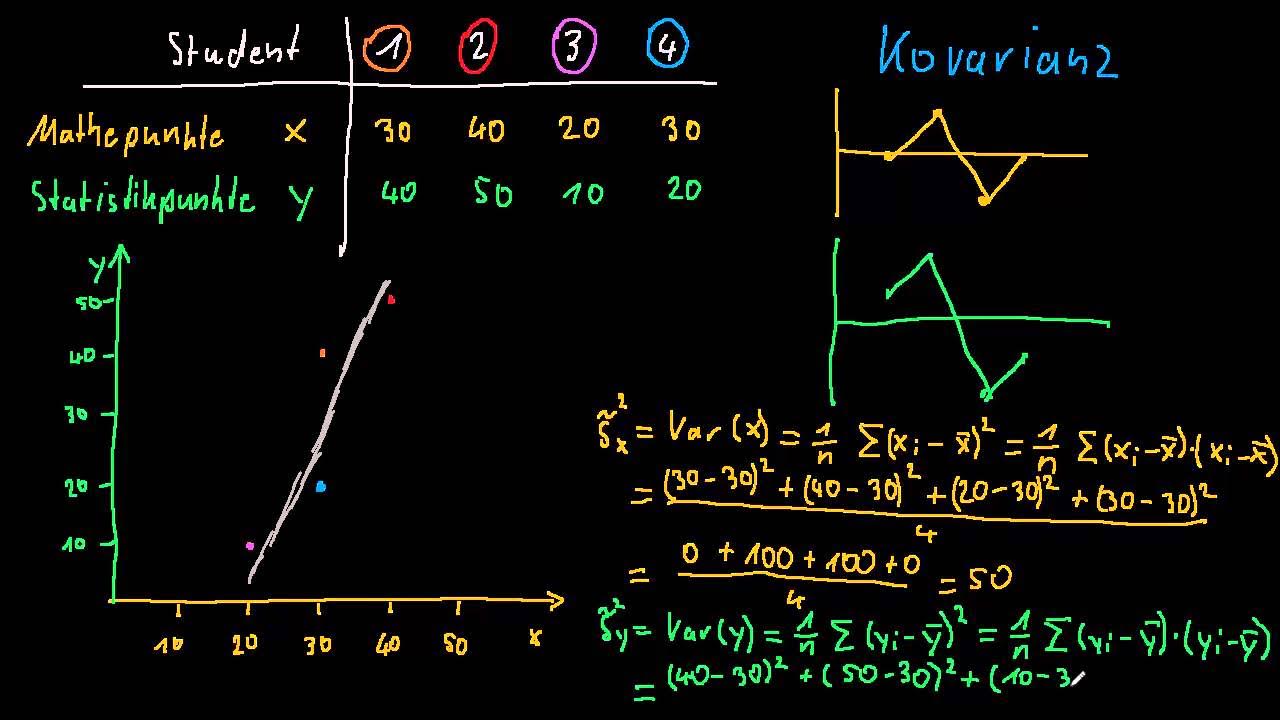 Student 1 2 3 4
Mathepunkte X 30 40 20 30
Statistikpunkte Y 40 50 10 20
Kovarianz
y
50
40
30
20
10
10 20 30 40 50 x
s̃ₓ² = Var(x) = 1/n Σ(xᵢ - x̄)² = 1/n Σ(xᵢ-x̄)·(xᵢ-x̄)
= ((30-30)² + (40-30)² + (20-30)² + (30-30)²)/4
= (0 + 100 + 100 + 0)/4 = 50
s̃y² = Var(y) = 1/n Σ(yᵢ - ȳ)² = 1/n Σ(yᵢ-ȳ)·(yᵢ-ȳ)
= (40-30)² + (50-30)² + (10-3